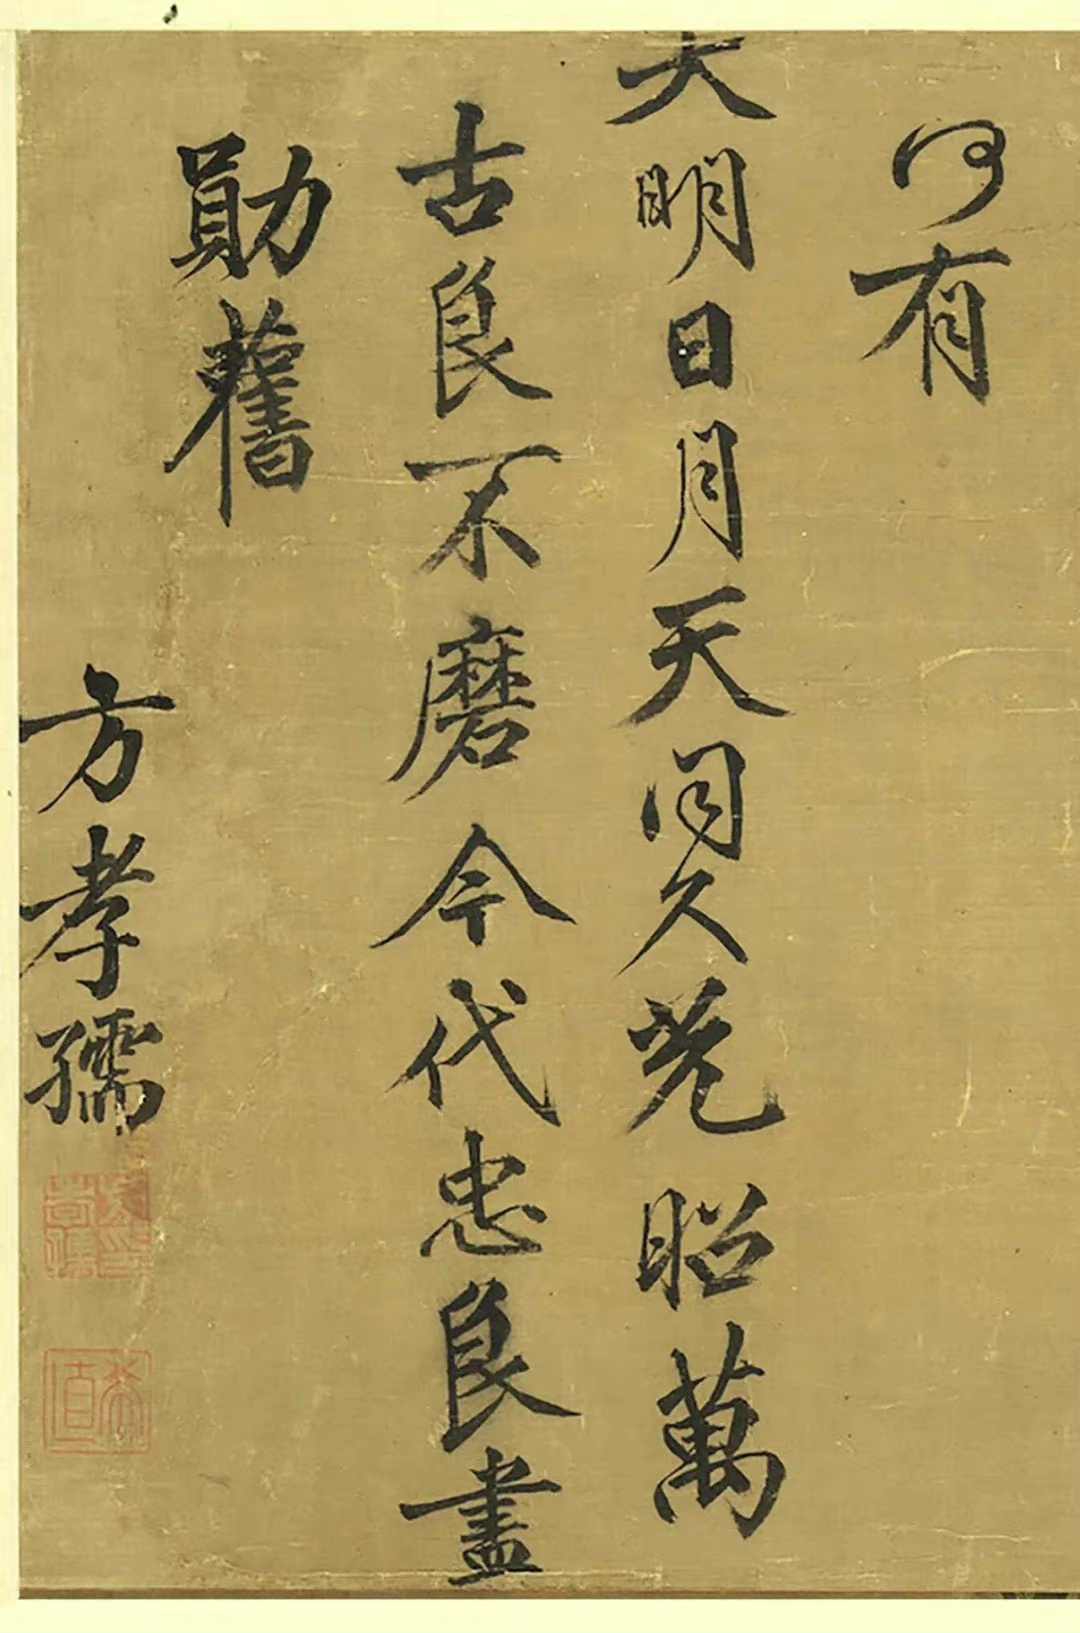 何有
大明日月天同久光昭萬
古良不磨今代忠良盡
勛舊
方孝孺